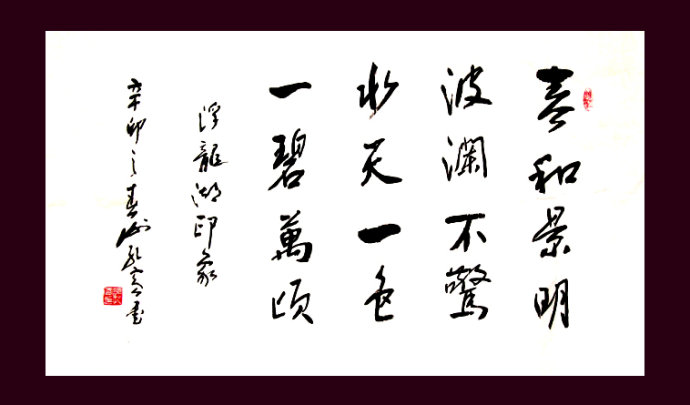 春和景明
波澜不驚
水天一色
一碧萬頃
浮龍湖印象
辛卯之春
書